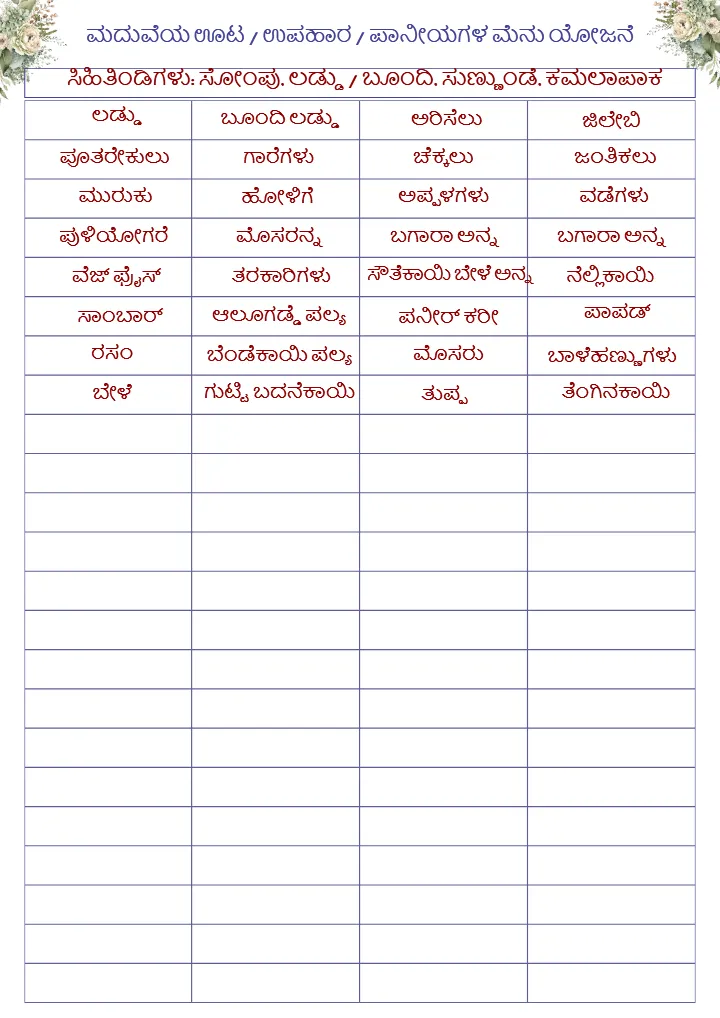 ಮದುವೆಯ ಊಟ / ಉಪಹಾರ / ಪಾನೀಯಗಳ ಮೆನು ಯೋಜನೆ
ಸಿಹಿತಿಂಡಿಗಳು: ಸೋಂಪು. ಲಡ್ಡು / ಬೂಂದಿ. ಸುಣ್ಣುಂಡೆ. ಕಮಲಾಪಾಕ
ಲಡ್ಡು ಬೂಂದಿ ಲಡ್ಡು ಅರಿಸೆಲು ಜಿಲೇಬಿ
ಪೂತರೇಕುಲು ಗಾರೆಗಳು ಚೆಕ್ಕಲು ಜಂತಿಕಲು
ಮುರುಕು ಹೋಳಿಗೆ ಅಪ್ಪಳಗಳು ವಡೆಗಳು
ಪುಳಿಯೋಗರೆ ಮೊಸರನ್ನ ಬಗಾರಾ ಅನ್ನ ಬಗಾರಾ ಅನ್ನ
ವೆಜ್ ಫ್ರೈಸ್ ತರಕಾರಿಗಳು ಸೌತೆಕಾಯಿ ಬೇಳೆ ಅನ್ನ ನೆಲ್ಲಿಕಾಯಿ
ಸಾಂಬಾರ್ ಆಲೂಗಡ್ಡೆ ಪಲ್ಯ ಪನೀರ್ ಕರೀ ಪಾಪಡ್
ರಸಂ ಬೆಂಡೆಕಾಯಿ ಪಲ್ಯ ಮೊಸರು ಬಾಳೆಹಣ್ಣುಗಳು
ಬೇಳೆ ಗುಟ್ಟಿ ಬದನೆಕಾಯಿ ತುಪ್ಪ ತೆಂಗಿನಕಾಯಿ